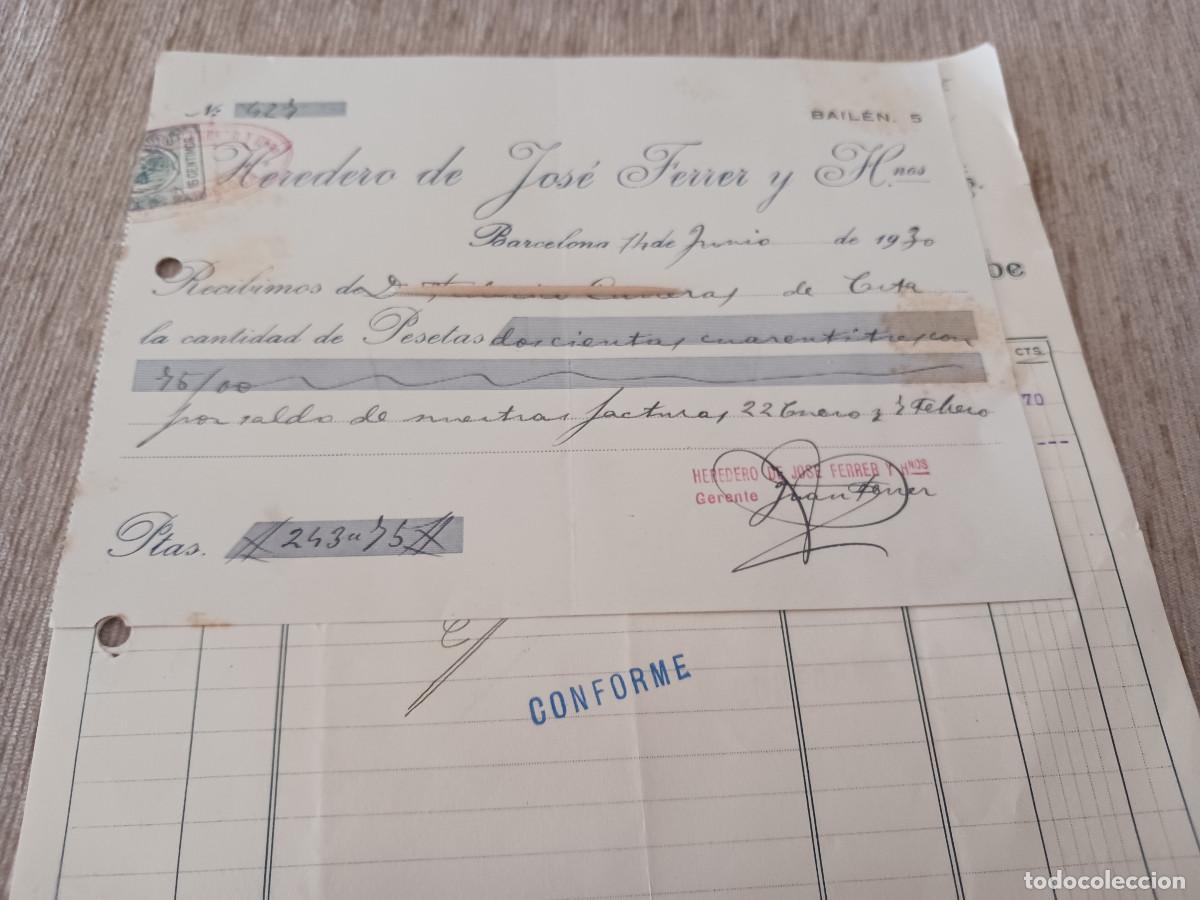 Nº 427
BAILÉN. 5
15 CENTIMOS
Heredero de José Ferrer y H.nos
Barcelona 14 de Junio de 1930
Recibimos de D. Cuneras de Esta
la cantidad de Pesetas doscientas cuarentitres con
75/00
por saldo de nuestras facturas 22 Enero y 7 Febrero
HEREDERO DE JOSE FERRER Y HNOS
Gerente Juan Ferrer
Ptas. 243 " 75
CTS.
70
CONFORME
todocoleccion